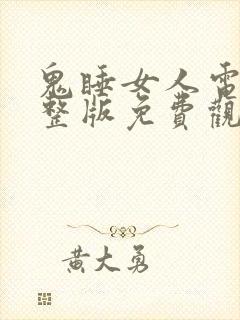 鬼睡女人電
整版免費觀
黃大勇